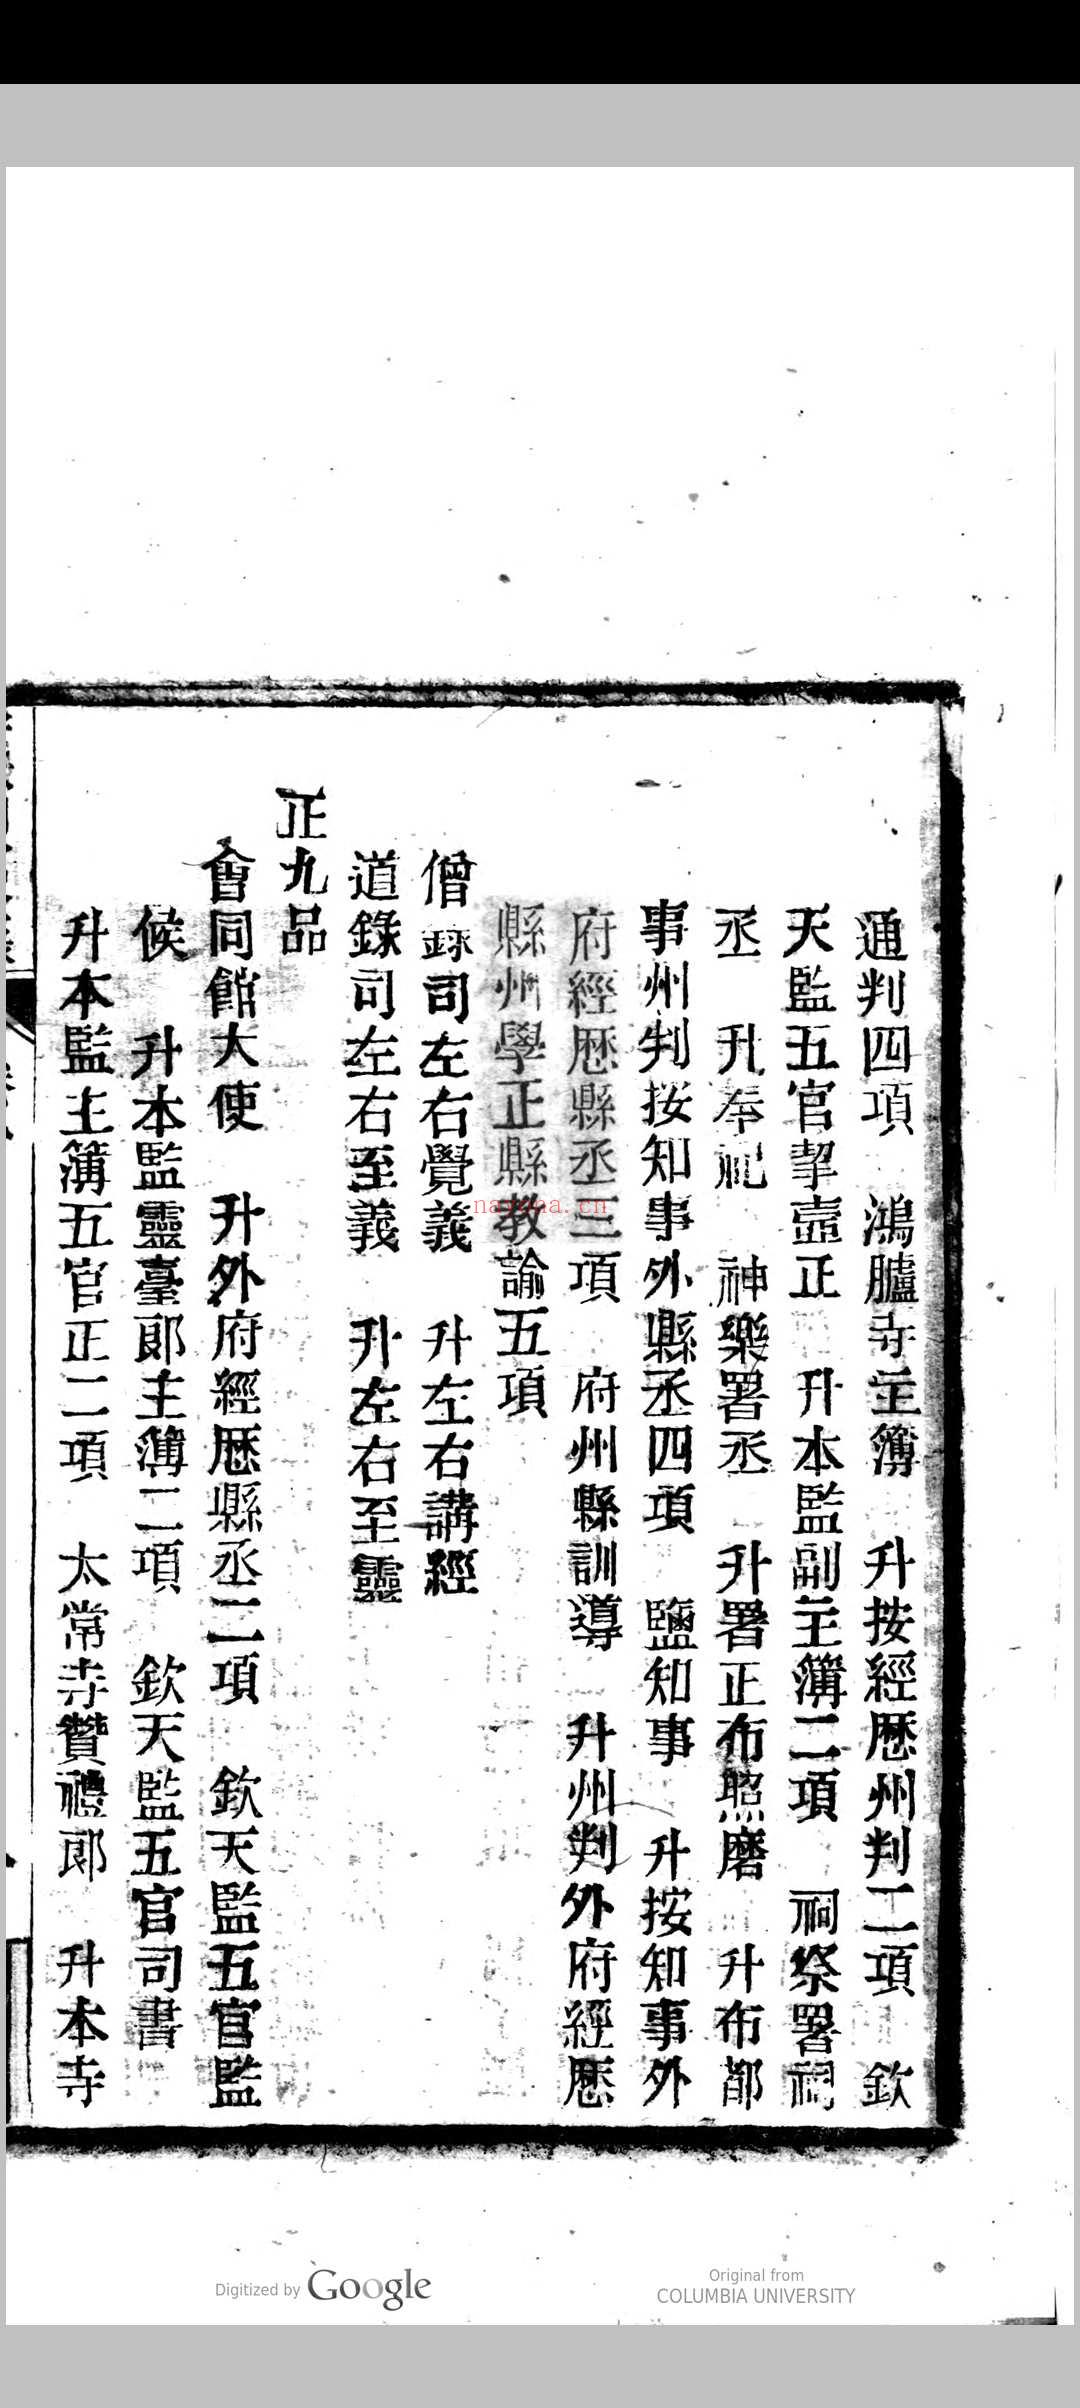 通判四項　鴻臚寺主簿　升按經歷州判二項　欽
天監五官挈壺正　升本監副主簿二項　祠祭署祠
丞　升奉祀　神樂署丞　升署正布照磨　升布都
事州判按知事外縣丞四項　鹽知事　升按知事外
府經歷縣丞三項　府州縣訓導　升州判外府經歷
縣州學正縣教諭五項
僧錄司左右覺義　升左右講經
道錄司左右至義　升左右至靈
正九品
會同館大使　升外府經歷縣丞二項　欽天監五官監
候　升本監靈臺郎主簿二項　欽天監五官司書
升本監主簿五官正二項　太常寺贊禮郎　升本寺
nayona.cn
Digitized by Google
Original from
COLUMBIA UNIVERSITY